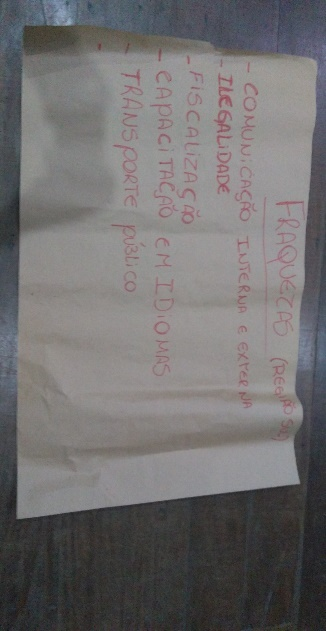 FRAQUEZAS (REGIÃO SUL)
- COMUNICAÇÃO INTERNA E EXTERNA
- ILEGALIDADE
- FISCALIZAÇÃO
- CAPACITAÇÃO EM IDIOMAS
- TRANSPORTE PÚBLICO
-